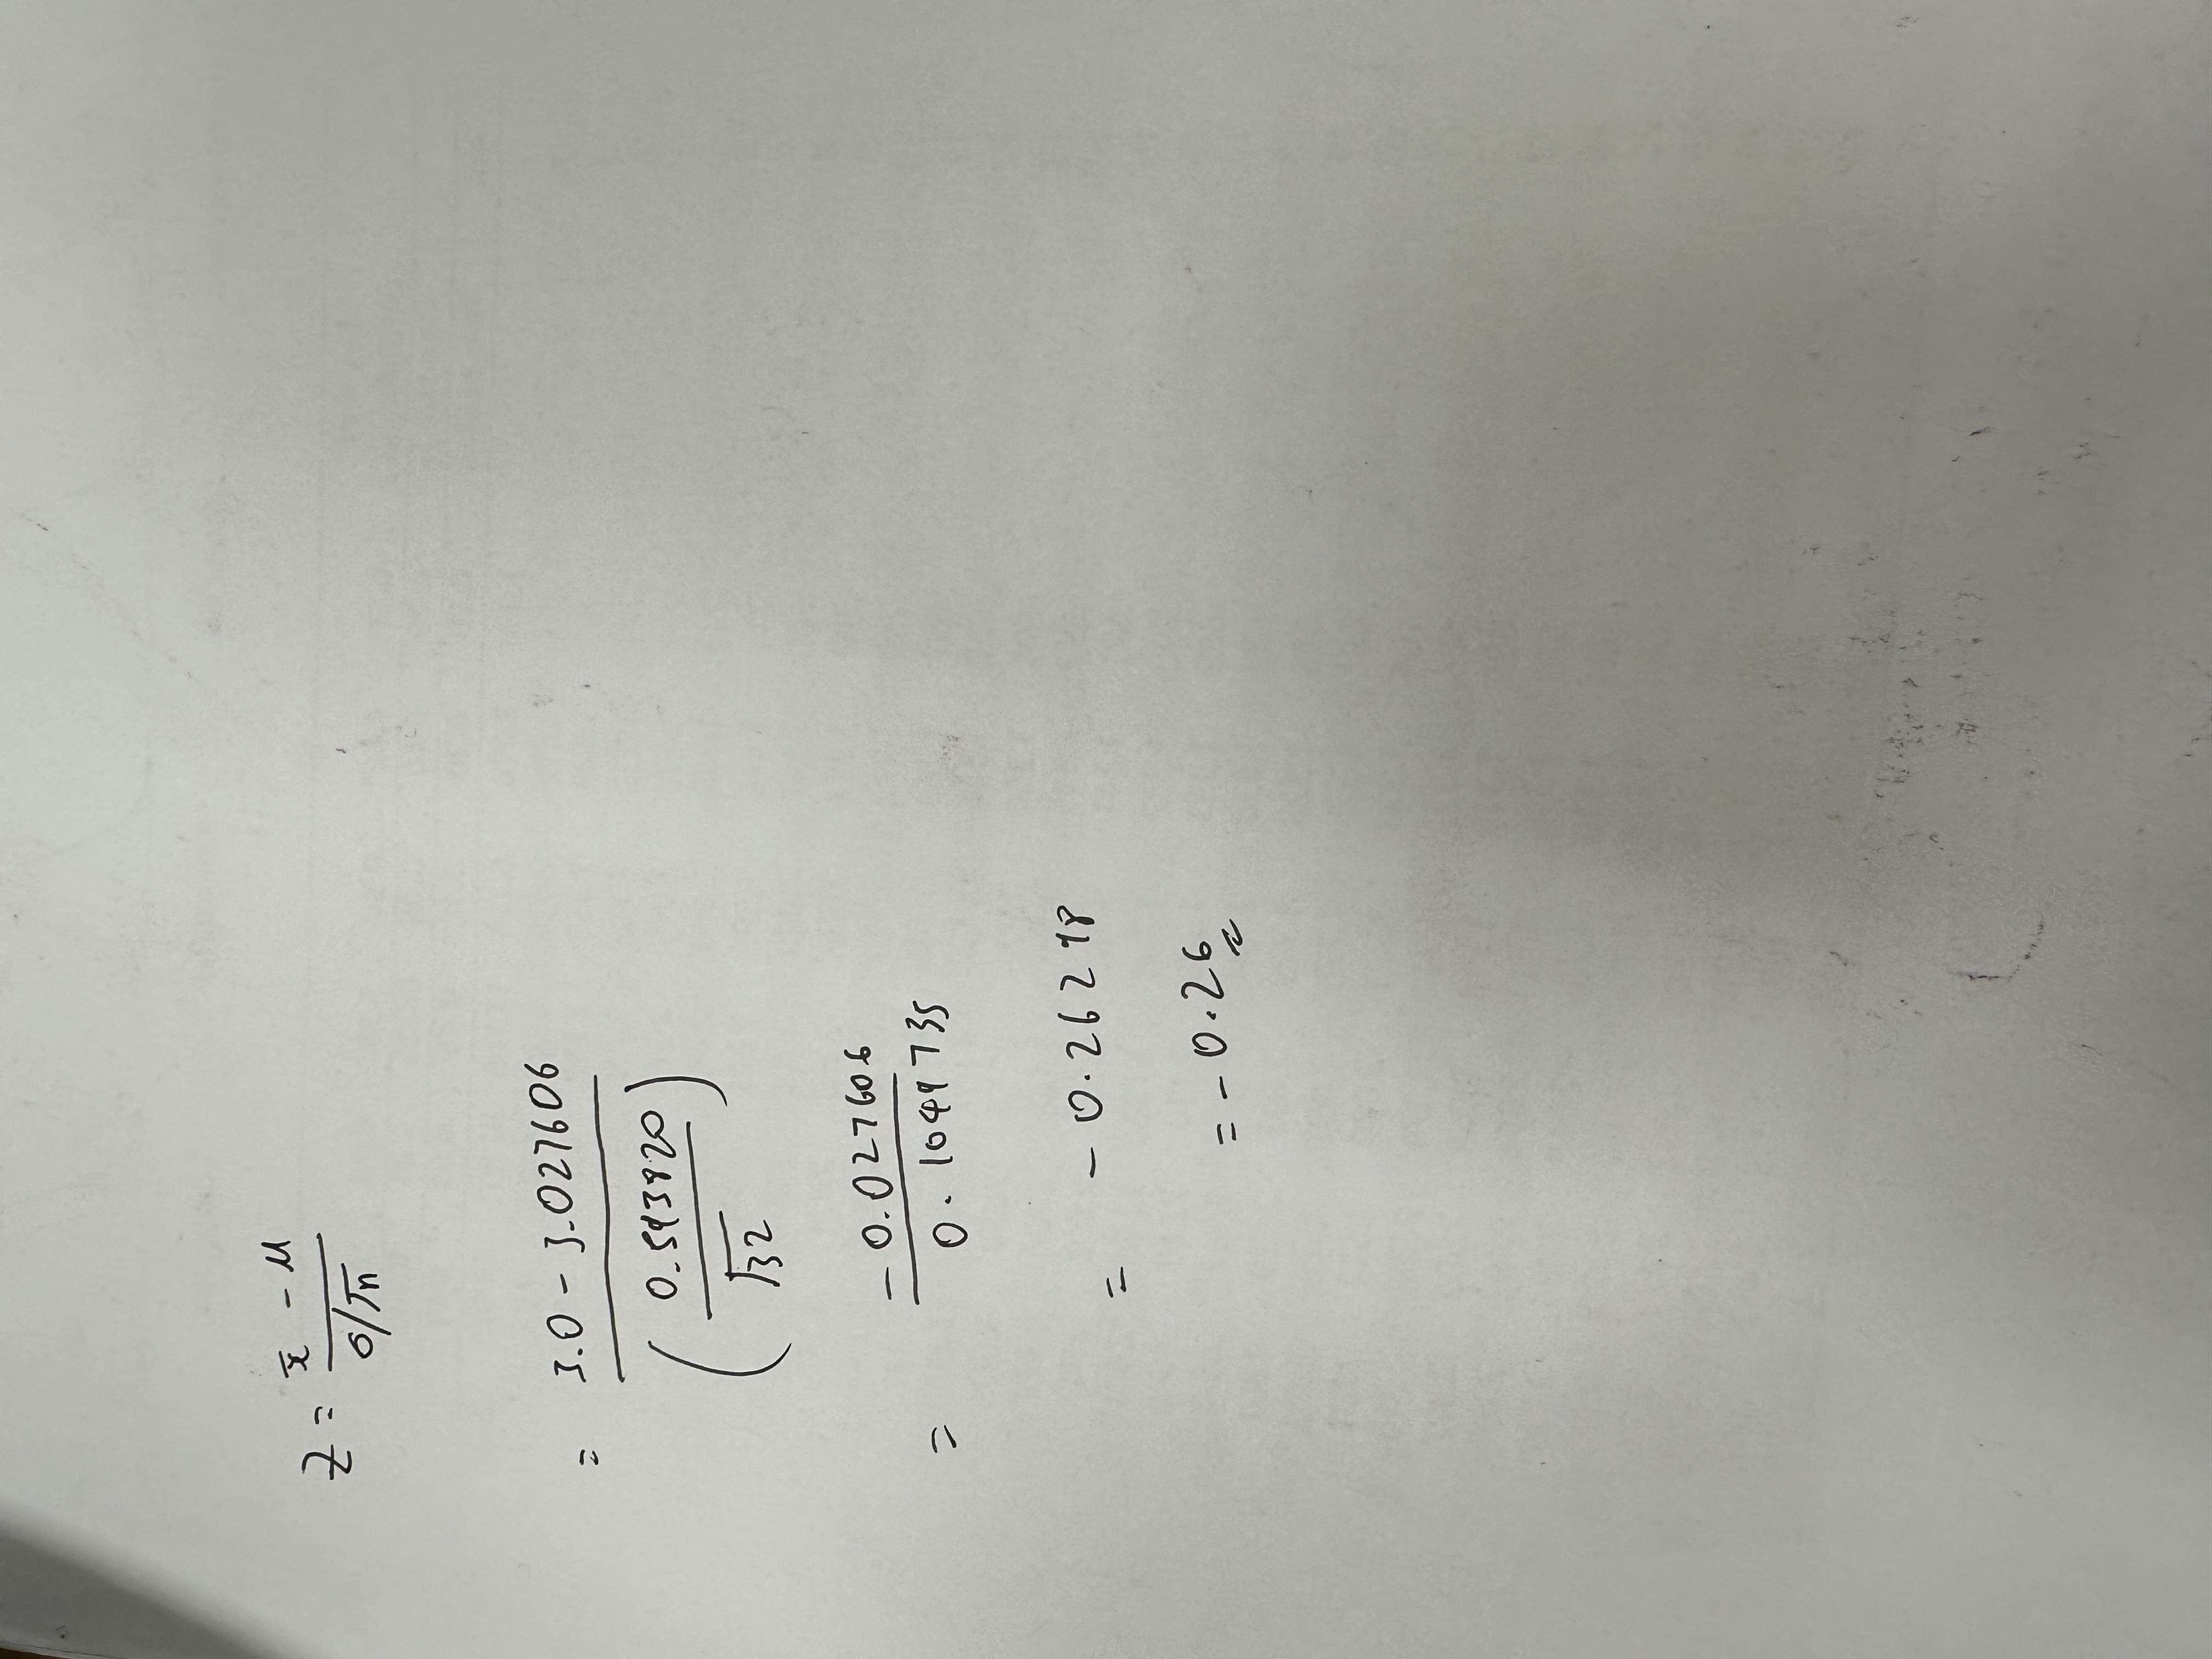 Z = x̄ - μ / σ/√n
= 3.0 - 3.027606 / (0.593820 / √32)
= -0.027606 / 0.1049735
= -0.26298
= -0.26